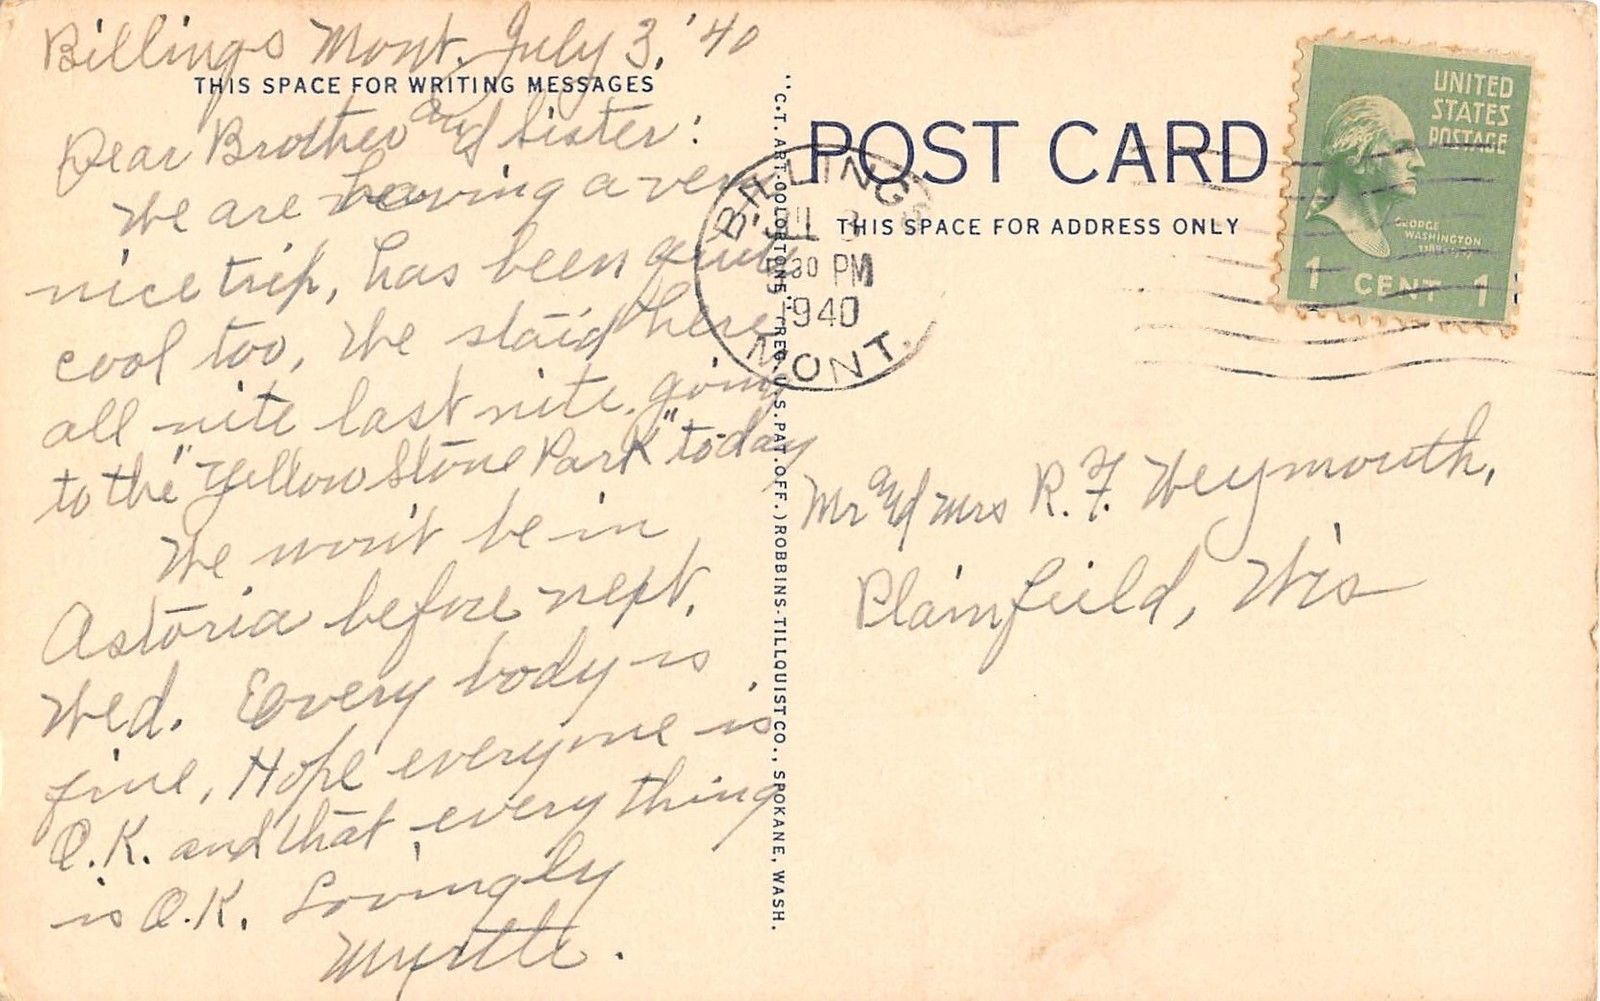 Billings Mont. July 3, '40
THIS SPACE FOR WRITING MESSAGES
Dear Brother and Sister:
We are having a very
nice trip, has been quite
cool too, We staid here
all nite last nite. going
to the "Yellow Stone Park" today
We won't be in
Astoria before next.
Wed. Every body is
fine, Hope everyone is
O.K. and that every thing
is O.K. Lovingly
Myrtle.
"C.T. ART-COLORTONE" (REG. U.S. PAT. OFF.) ROBBINS-TILLQUIST CO., SPOKANE, WASH.
POST CARD
THIS SPACE FOR ADDRESS ONLY
BILLINGS
JUL 3
30 PM
1940
MONT.
UNITED
STATES
POSTAGE
GEORGE
WASHINGTON
1 CENT 1
Mr and Mrs R. F. Weymouth,
Plainfield, Wis